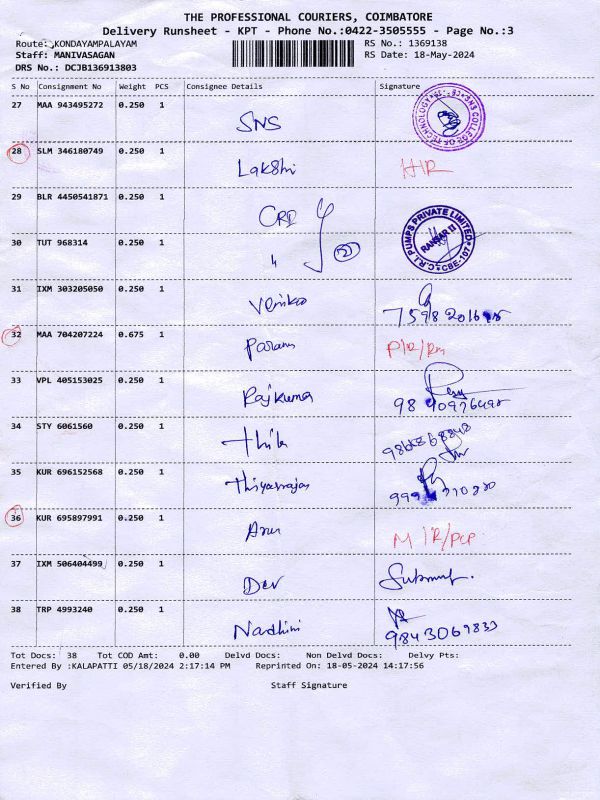 THE PROFESSIONAL COURIERS, COIMBATORE
Delivery Runsheet - KPT - Phone No.:0422-3505555 - Page No.:3
Route: ,KONDAYAMPALAYAM RS No.: 1369138
Staff: MANIVASAGAN RS Date: 18-May-2024
DRS No.: DCJB136913803
S No Consignment No Weight PCS Consignee Details Signature
27 MAA 943495272 0.250 1 SNS SNS COLLEGE OF TECHNOLOGY
28 SLM 346180749 0.250 1 Lakshi H/R
29 BLR 4450541871 0.250 1 CRI C.R.I. PUMPS PRIVATE LIMITED
RANSAR II
CBE-107
30 TUT 968314 0.250 1 " 2
31 IXM 303205050 0.250 1
32 MAA 704207224 0.675 1 Param P/R/Rm
33 VPL 405153025 0.250 1 Rajkuma
34 STY 6061560 0.250 1 thila
35 KUR 696152568 0.250 1
36 KUR 695897991 0.250 1 Arun M/R/PCP
37 IXM 506404499 0.250 1 Dev
38 TRP 4993240 0.250 1 Nadhini 9843069833
Tot Docs: 38 Tot COD Amt: 0.00 Delvd Docs: Non Delvd Docs: Delvy Pts:
Entered By :KALAPATTI 05/18/2024 2:17:14 PM Reprinted On: 18-05-2024 14:17:56
Verified By Staff Signature